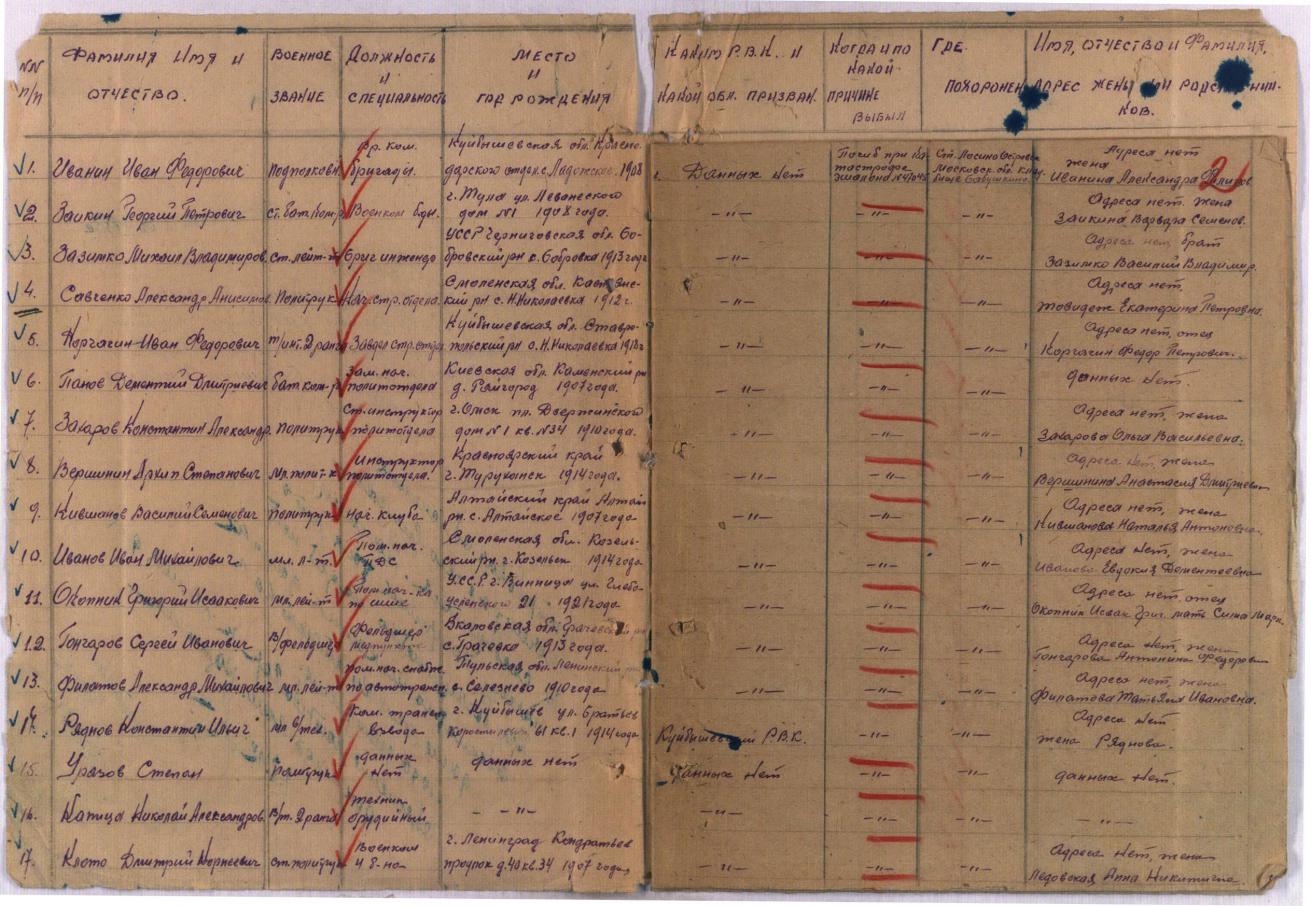 NN п/п
Фамилия Имя и отчество.
Военное звание
Должность и специальность
Место и год рождения
Каким Р.В.К. и какой обл. призван.
Когда и по какой причине выбыл
Где похоронен
Имя, отчество и фамилия, адрес жены или родственников.
1. Иванин Иван Федорович Подполковн. бригады. Куйбышевская обл. 1908 Данных нет Погиб при эшалона Ст. Лосино Остров Московск. обл. Адреса нет жена Иванина Александра
2. Заикин Георгий Петрович ст. бат. ком. Военком г. Тула ул. Леваневского дом №1 1908 года. -"- -"- -"- Адреса нет. жена Заикина Варвара Семенов.
3. Зазимко Михаил Владимиров. ст. лейт-т бриг инжене УССР Черниговская обл. Бобровский рн с. Бобровка 1913 года -"- -"- -"- Адреса нет, брат Зазимко Василий Владимир.
4. Савченко Александр Анисимов Политрук Нач. стр. отдела. Смоленская обл. с. Н.Николаевка 1912 г. -"- -"- -"- Адреса нет. Екатерина Петровна.
5. Корчагин Иван Федорович Куйбышевская обл. Ставропольский рн с. Н.Николаевка -"- -"- -"- Адреса нет, отец Корчагин Федор Петрович.
6. Панов Дементий Дмитриевич бат ком-р Зам. нач. политотдела Киевская обл. Каменский рн д. Райгород 1907 года. -"- -"- -"- данных нет.
7. Захаров Константин Александр. политрук Ст. инструктор политотдела г. Омск пл. Дзержинского дом №1 кв. №34 1910 года. -"- -"- -"- Адреса нет, жена Захарова Ольга Васильевна.
8. Вершинин Архип Степанович мл. полит-к Инструктор политотдела. Красноярский край г. Туруханск 1914 года -"- -"- -"- Адреса нет, жена Вершинина Анастасия Дмитриевн
9. Кившанов Василий Семенович политрук Нач. клуба Алтайский край Алтай рн. с. Алтайское 1907 года -"- -"- -"- Адреса нет, жена Кившанова Наталья Антоновна.
10. Иванов Иван Михайлович мл. л-т. Пом. нач. ПДС Смоленская обл. Козельский рн. г. Козельск 1914 года -"- -"- -"- Адреса нет, жена Иванова Евдокия Дементеевна
11. Охотник Григорий Исаакович мл. лей-т УССР г. Винница ул. Глеба Успенского 21 1921 года -"- -"- -"- Адреса нет, отец Охотник Исаак Григ. мать Сима Марк.
12. Гончаров Сергей Иванович В/фельдшер Фельдшер Чкаловская обл. Грачевский рн с. Грачевка 1913 года. -"- -"- -"- Адреса нет, жена Гончарова Антонина Федоровн
13. Филатов Александр Михайлович мл. лей-т пом. нач. снабж. по автотрансп. Тульская обл. Ленинский рн с. Селезнево 1910 года -"- -"- -"- Адреса нет, жена Филатова Татьяна Ивановна.
14. Ряднов Константин Ильич Ком. трансп взвода г. Куйбышев ул. Братьев 61 кв. 1 1914 года Куйбышевский Р.В.К. -"- -"- Адреса нет жена Ряднова.
15. Уразов Степан Политрук данных нет данных нет Данных нет -"- -"- данных нет.
16. Капица Николай Александров. техник орудийный -"- -"- -"- -"- -"-
17. Клото Дмитрий Корнеевич ст. политрук Военком г. Ленинград Кондратьев продок д. 40 кв. 34 1907 года -"- -"- -"- Адреса нет, жена Ледовская Анна Никитична.
2